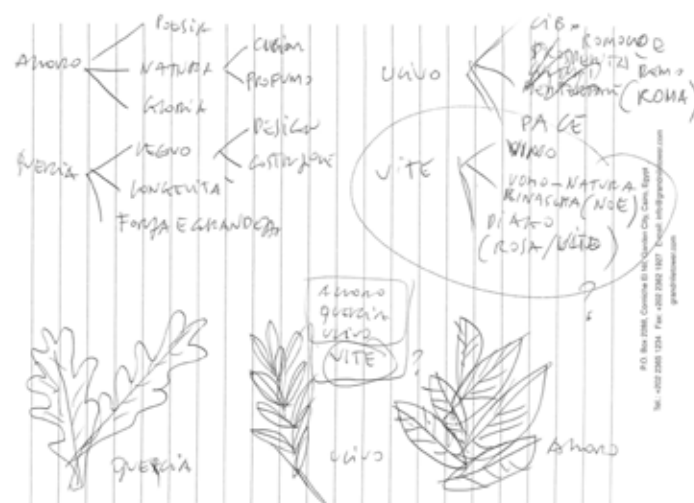 ALLORO
POESIA
NATURA
CUCINA
PROFUMO
GLORIA
QUERCIA
LEGNO
DESIGN
COSTRUZIONE
LONGEVITÀ
FORZA E GRANDEZZA
ULIVO
CIBO
ROMOLO E
REMO
(ROMA)
PACE
VITE
VINO
UOMO-NATURA
RINASCITA (NOÈ)
(ROSA/VITE)
?
ALLORO
QUERCIA
ULIVO
VITE
?
QUERCIA
ULIVO
ALLORO
P.O. Box 2288, Corniche El Nil, Garden City, Cairo, Egypt
Tel: +202 2365 1234 Fax: +202 2362 1927 E-mail: info@grandniletower.com
grandniletower.com